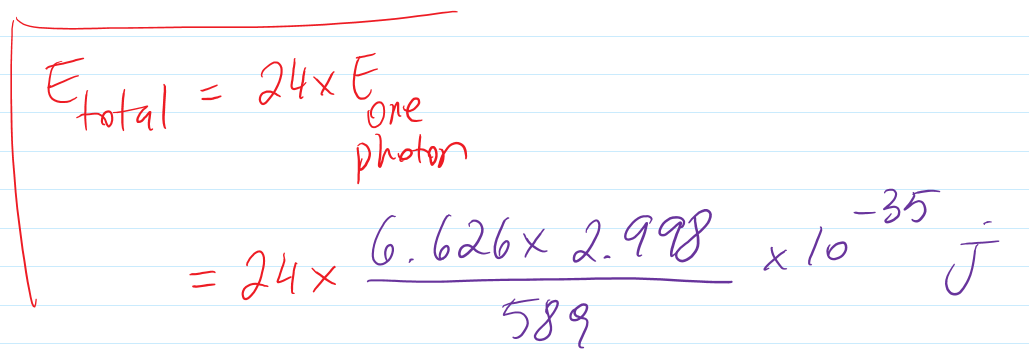 E_total = 24 x E_one photon
= 24 x (6.626 x 2.998)/589 x 10^-35 j